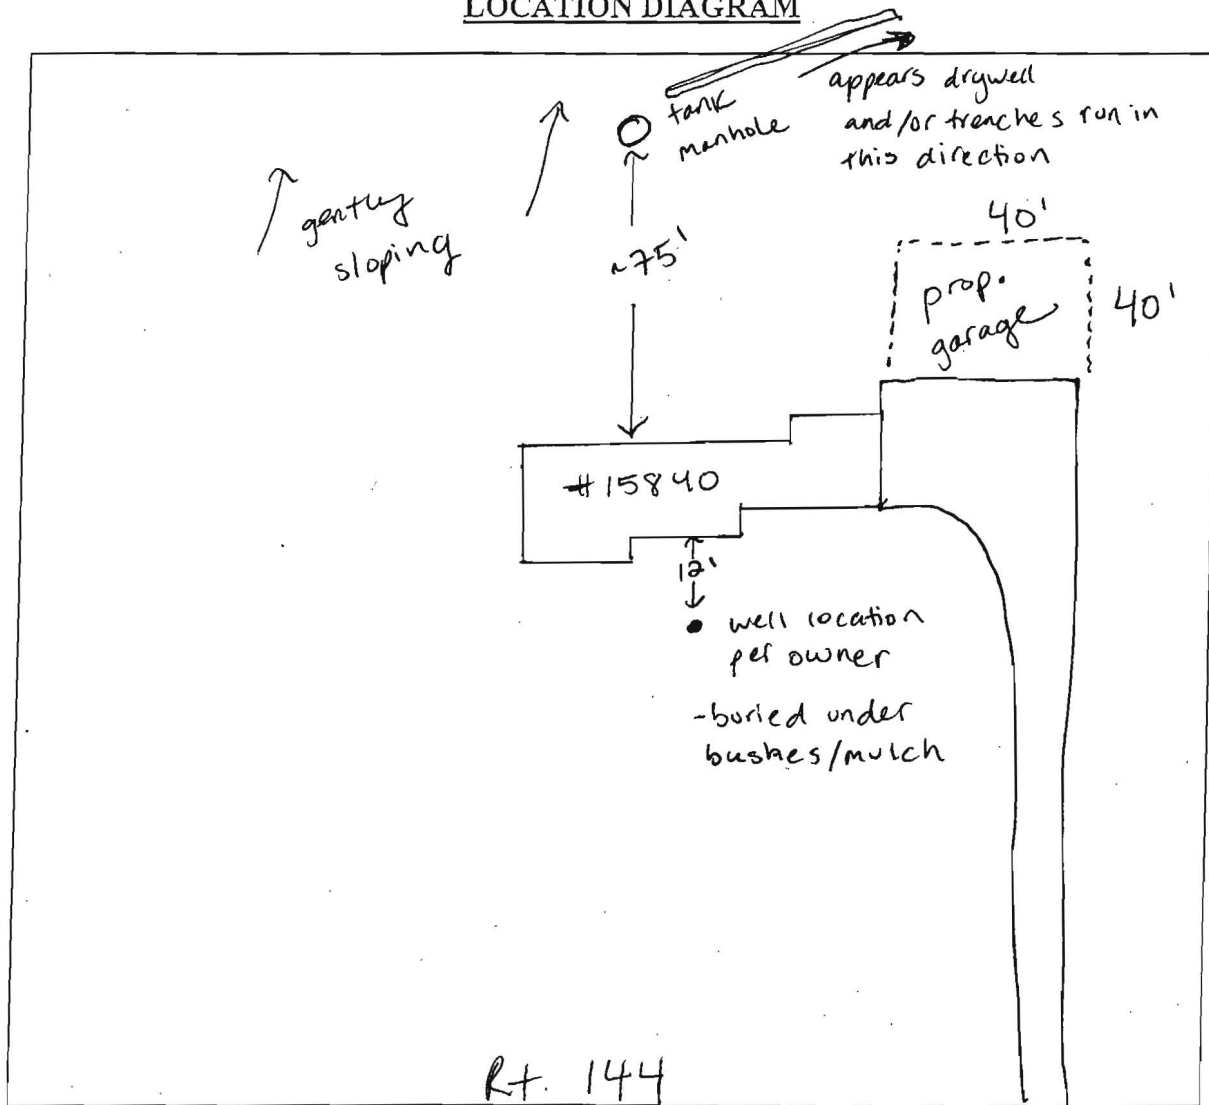 LOCATION DIAGRAM
tank
manhole
appears drywell
and/or trenches run in
this direction
gently
sloping
~75'
40'
prop.
garage
40'
#15840
12'
well location
per owner
-buried under
bushes/mulch
Rt. 144